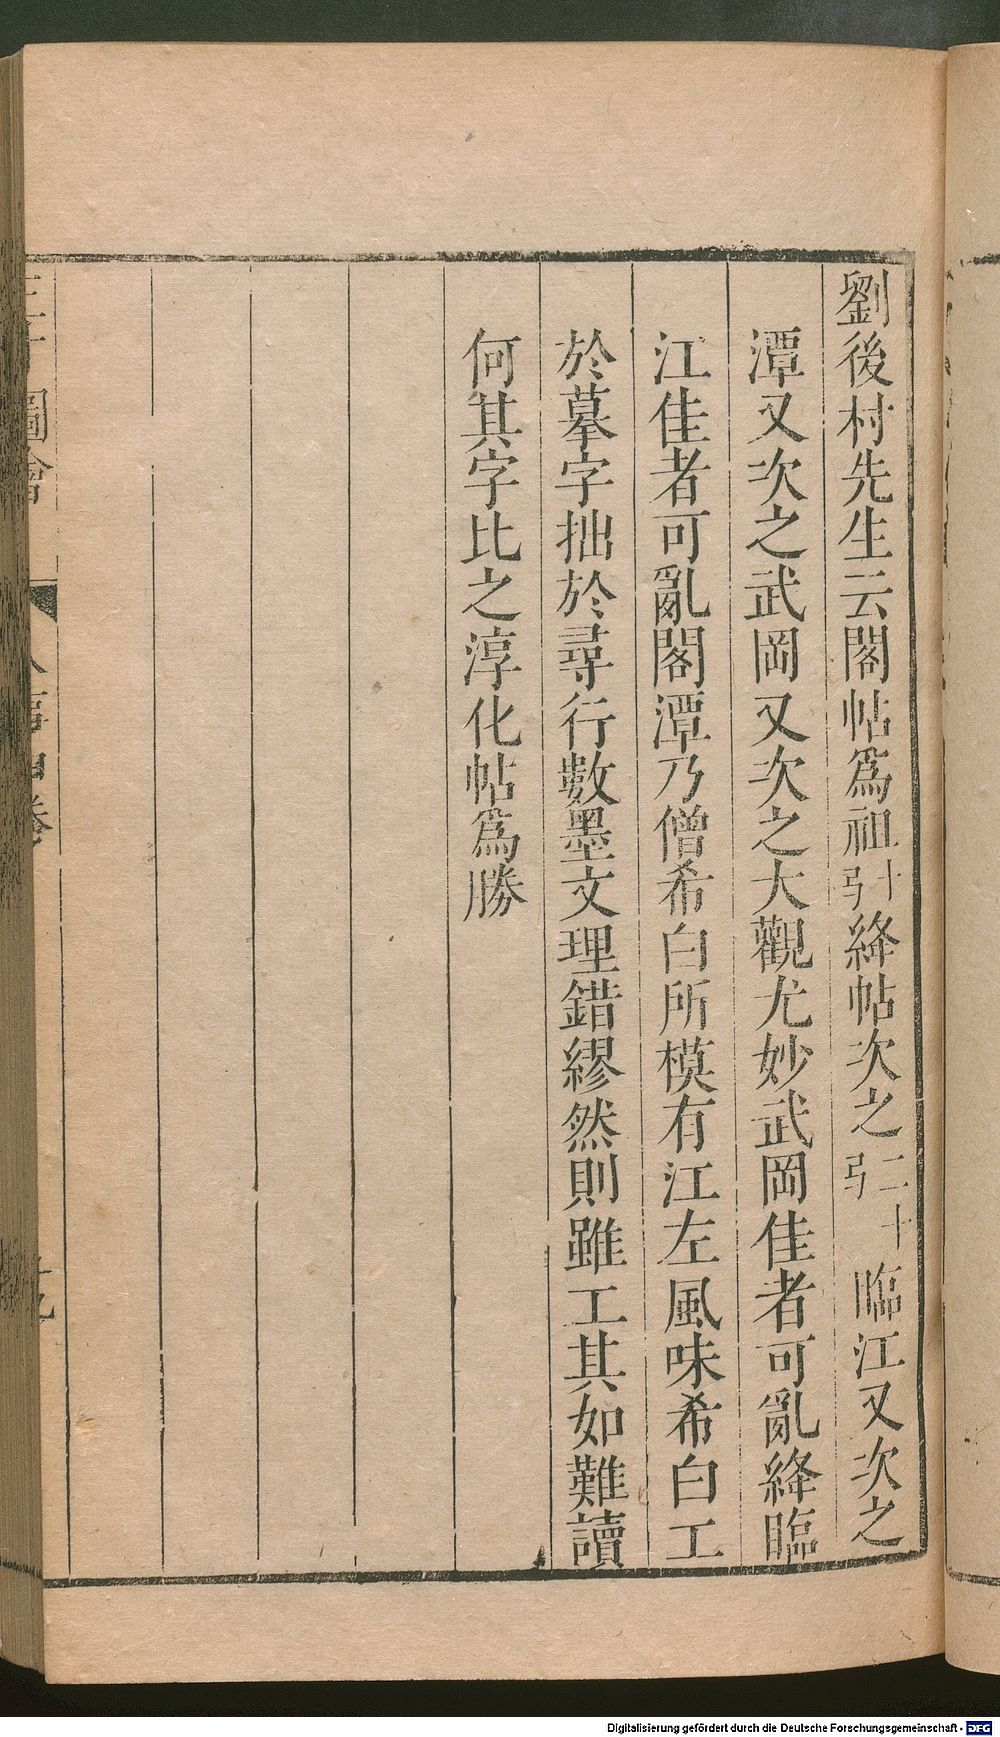 劉後村先生云閣帖爲祖十引絳帖次之二十引臨江又次之
潭又次之武岡又次之大觀尤妙武岡佳者可亂絳臨
江佳者可亂閣潭乃僧希白所模有江左風味希白工
於摹字拙於尋行數墨文理錯繆然則雖工其如難讀
何其字比之淳化帖爲勝
圖會
人事四卷
十九
Digitalisierung gefördert durch die Deutsche Forschungsgemeinschaft - DFG